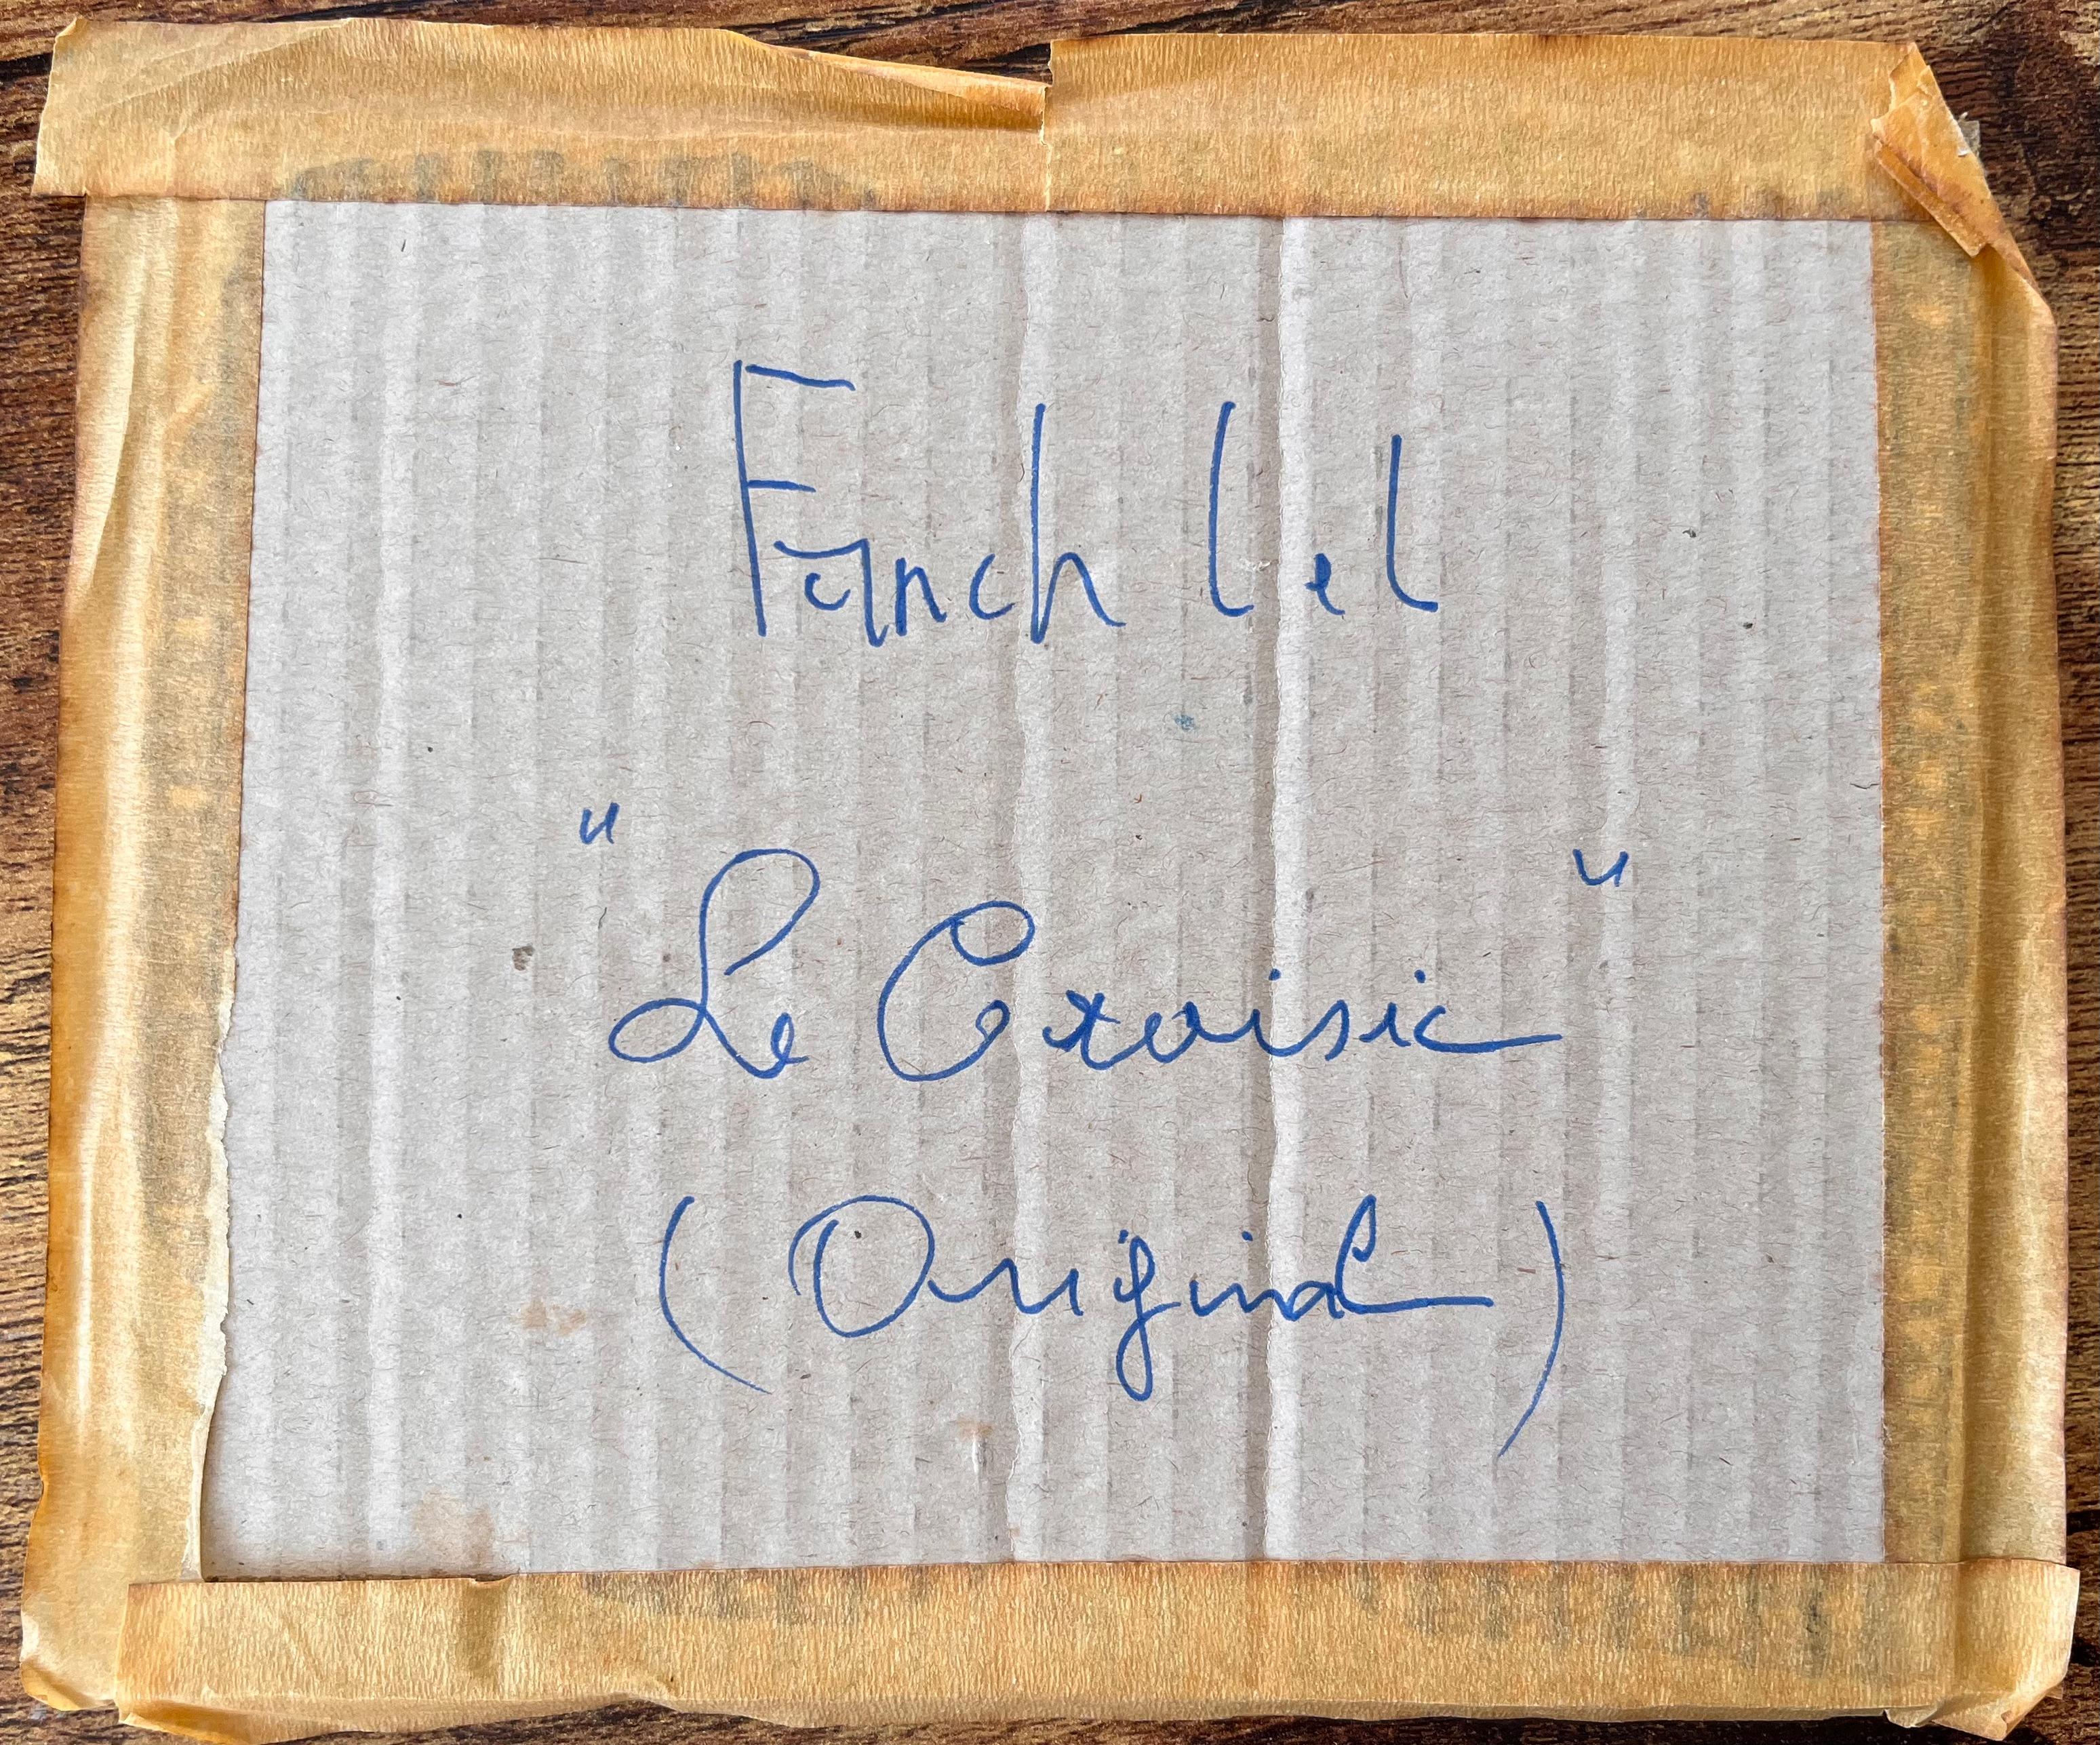 Fanch Lel
"Le Croisic"
(Original)